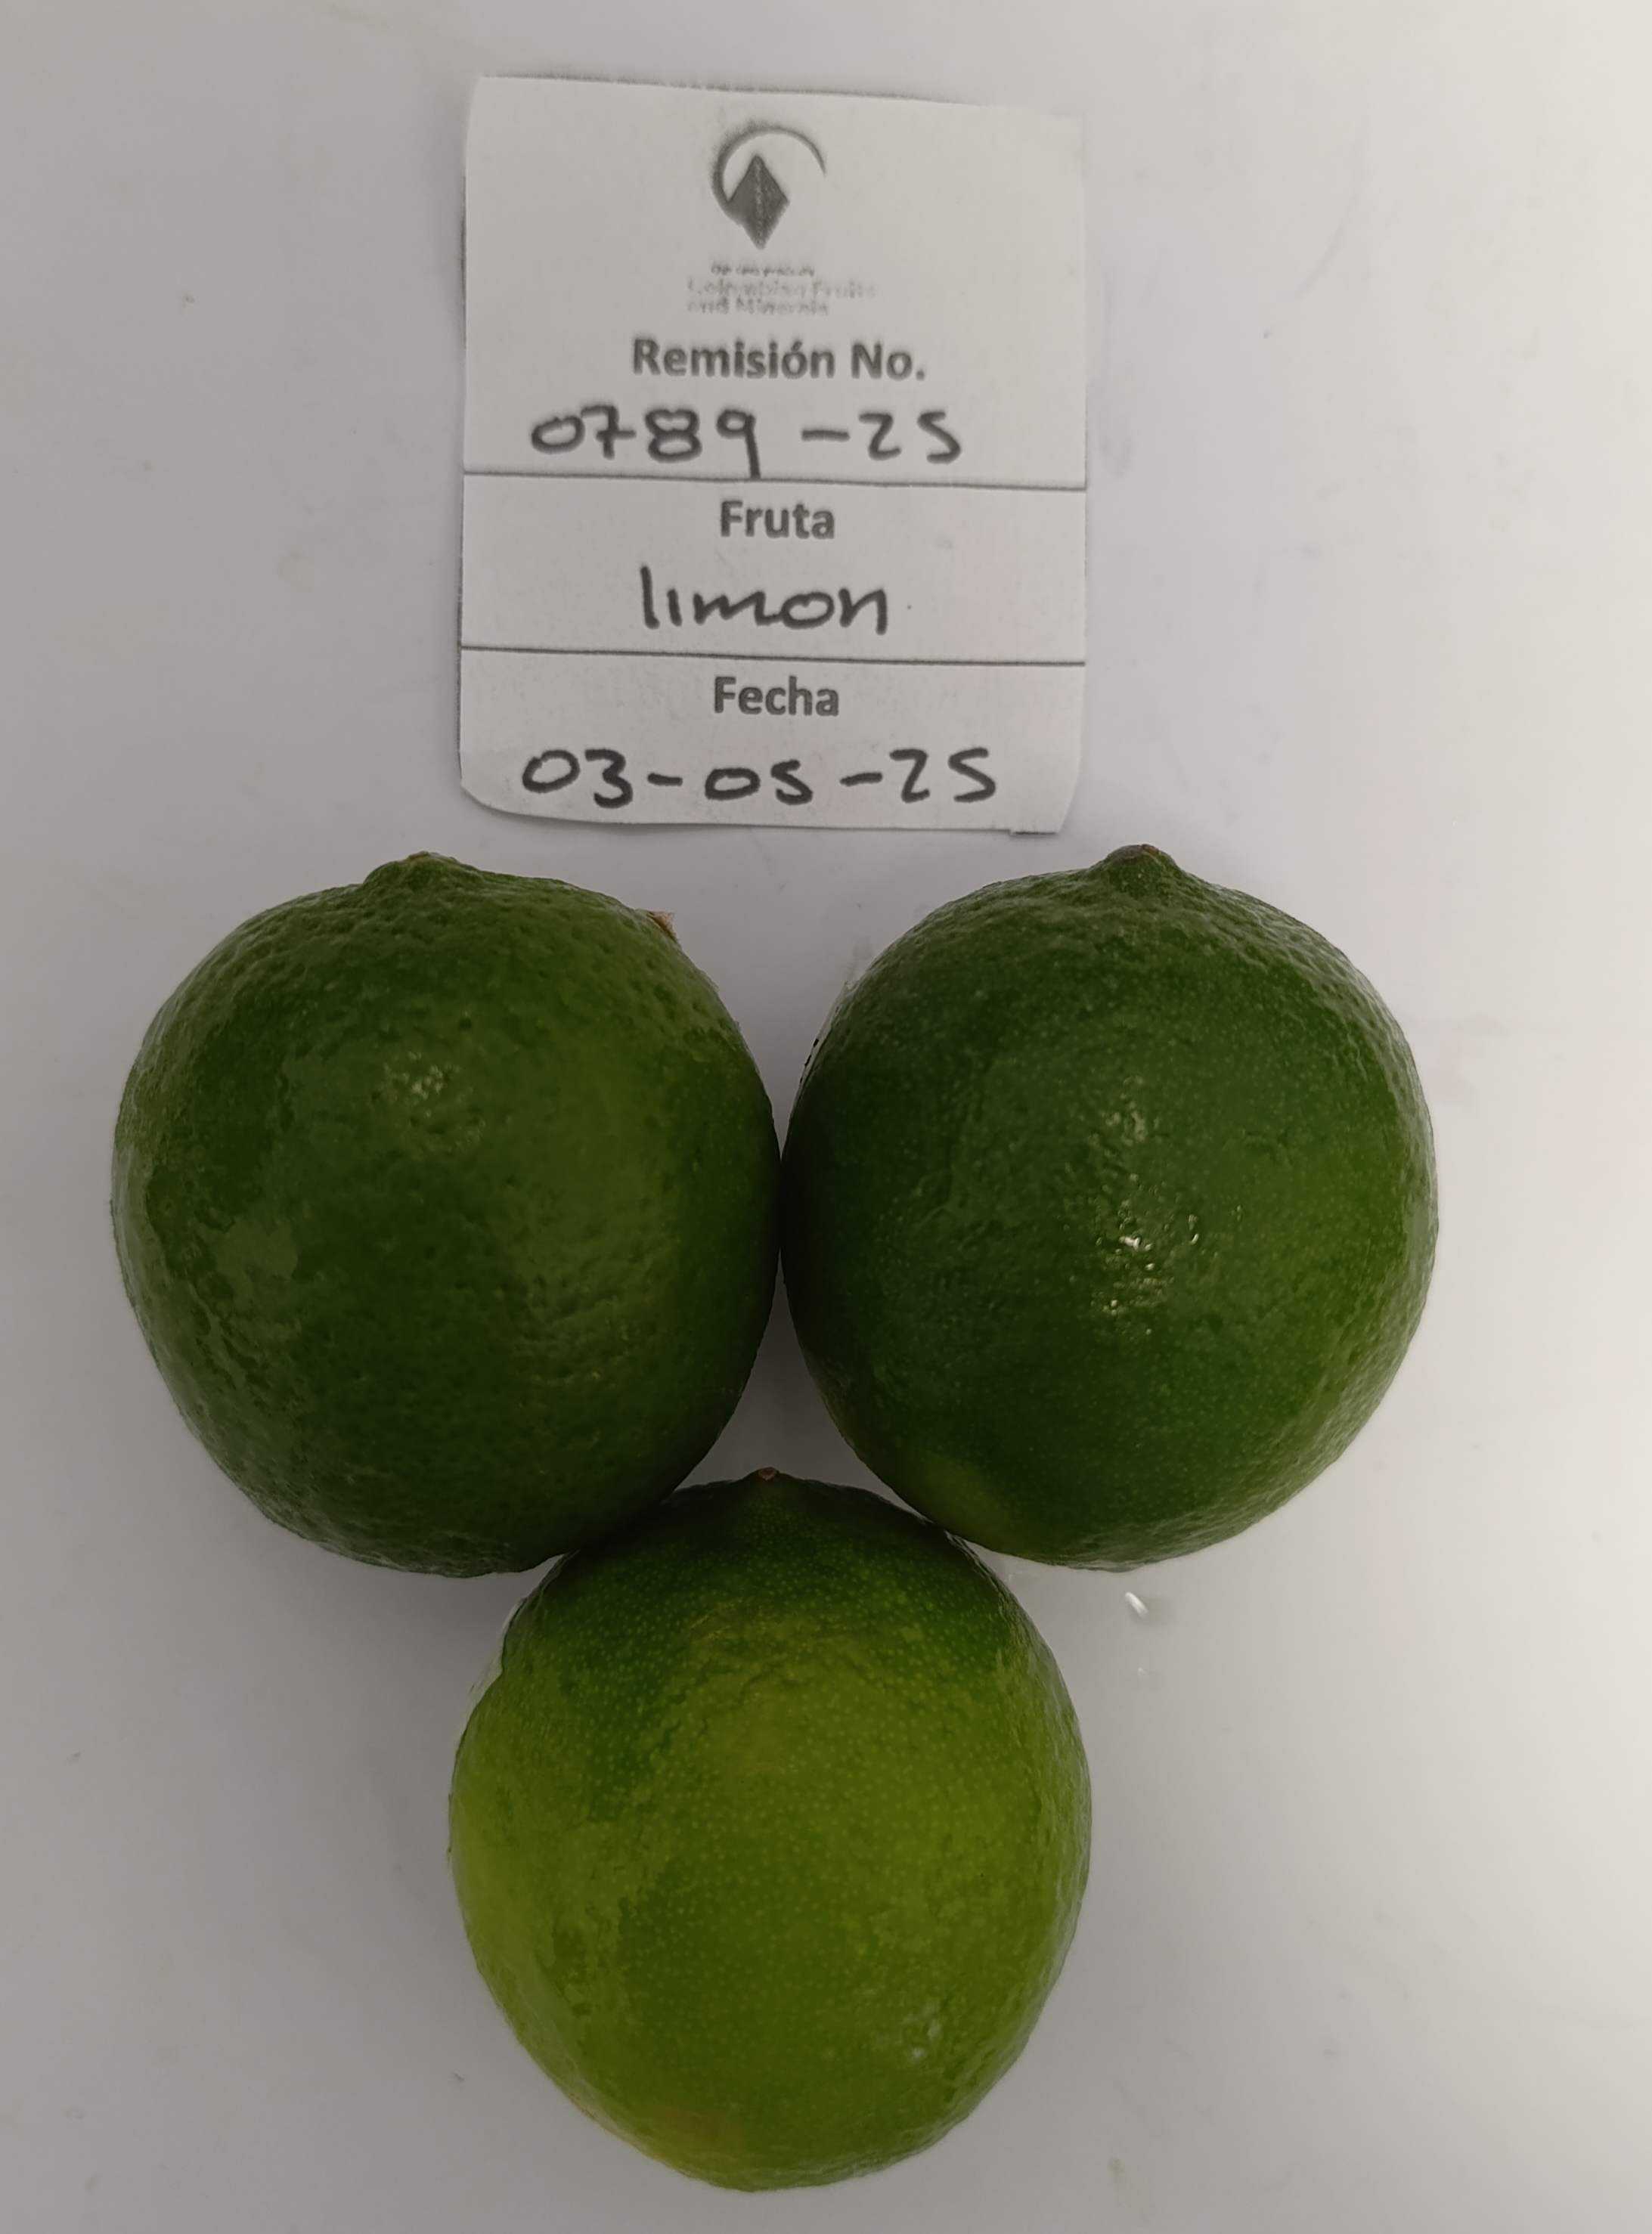 Colombian Fruits
and Minerals
Remisión No.
0789-25
Fruta
limon
Fecha
03-05-25